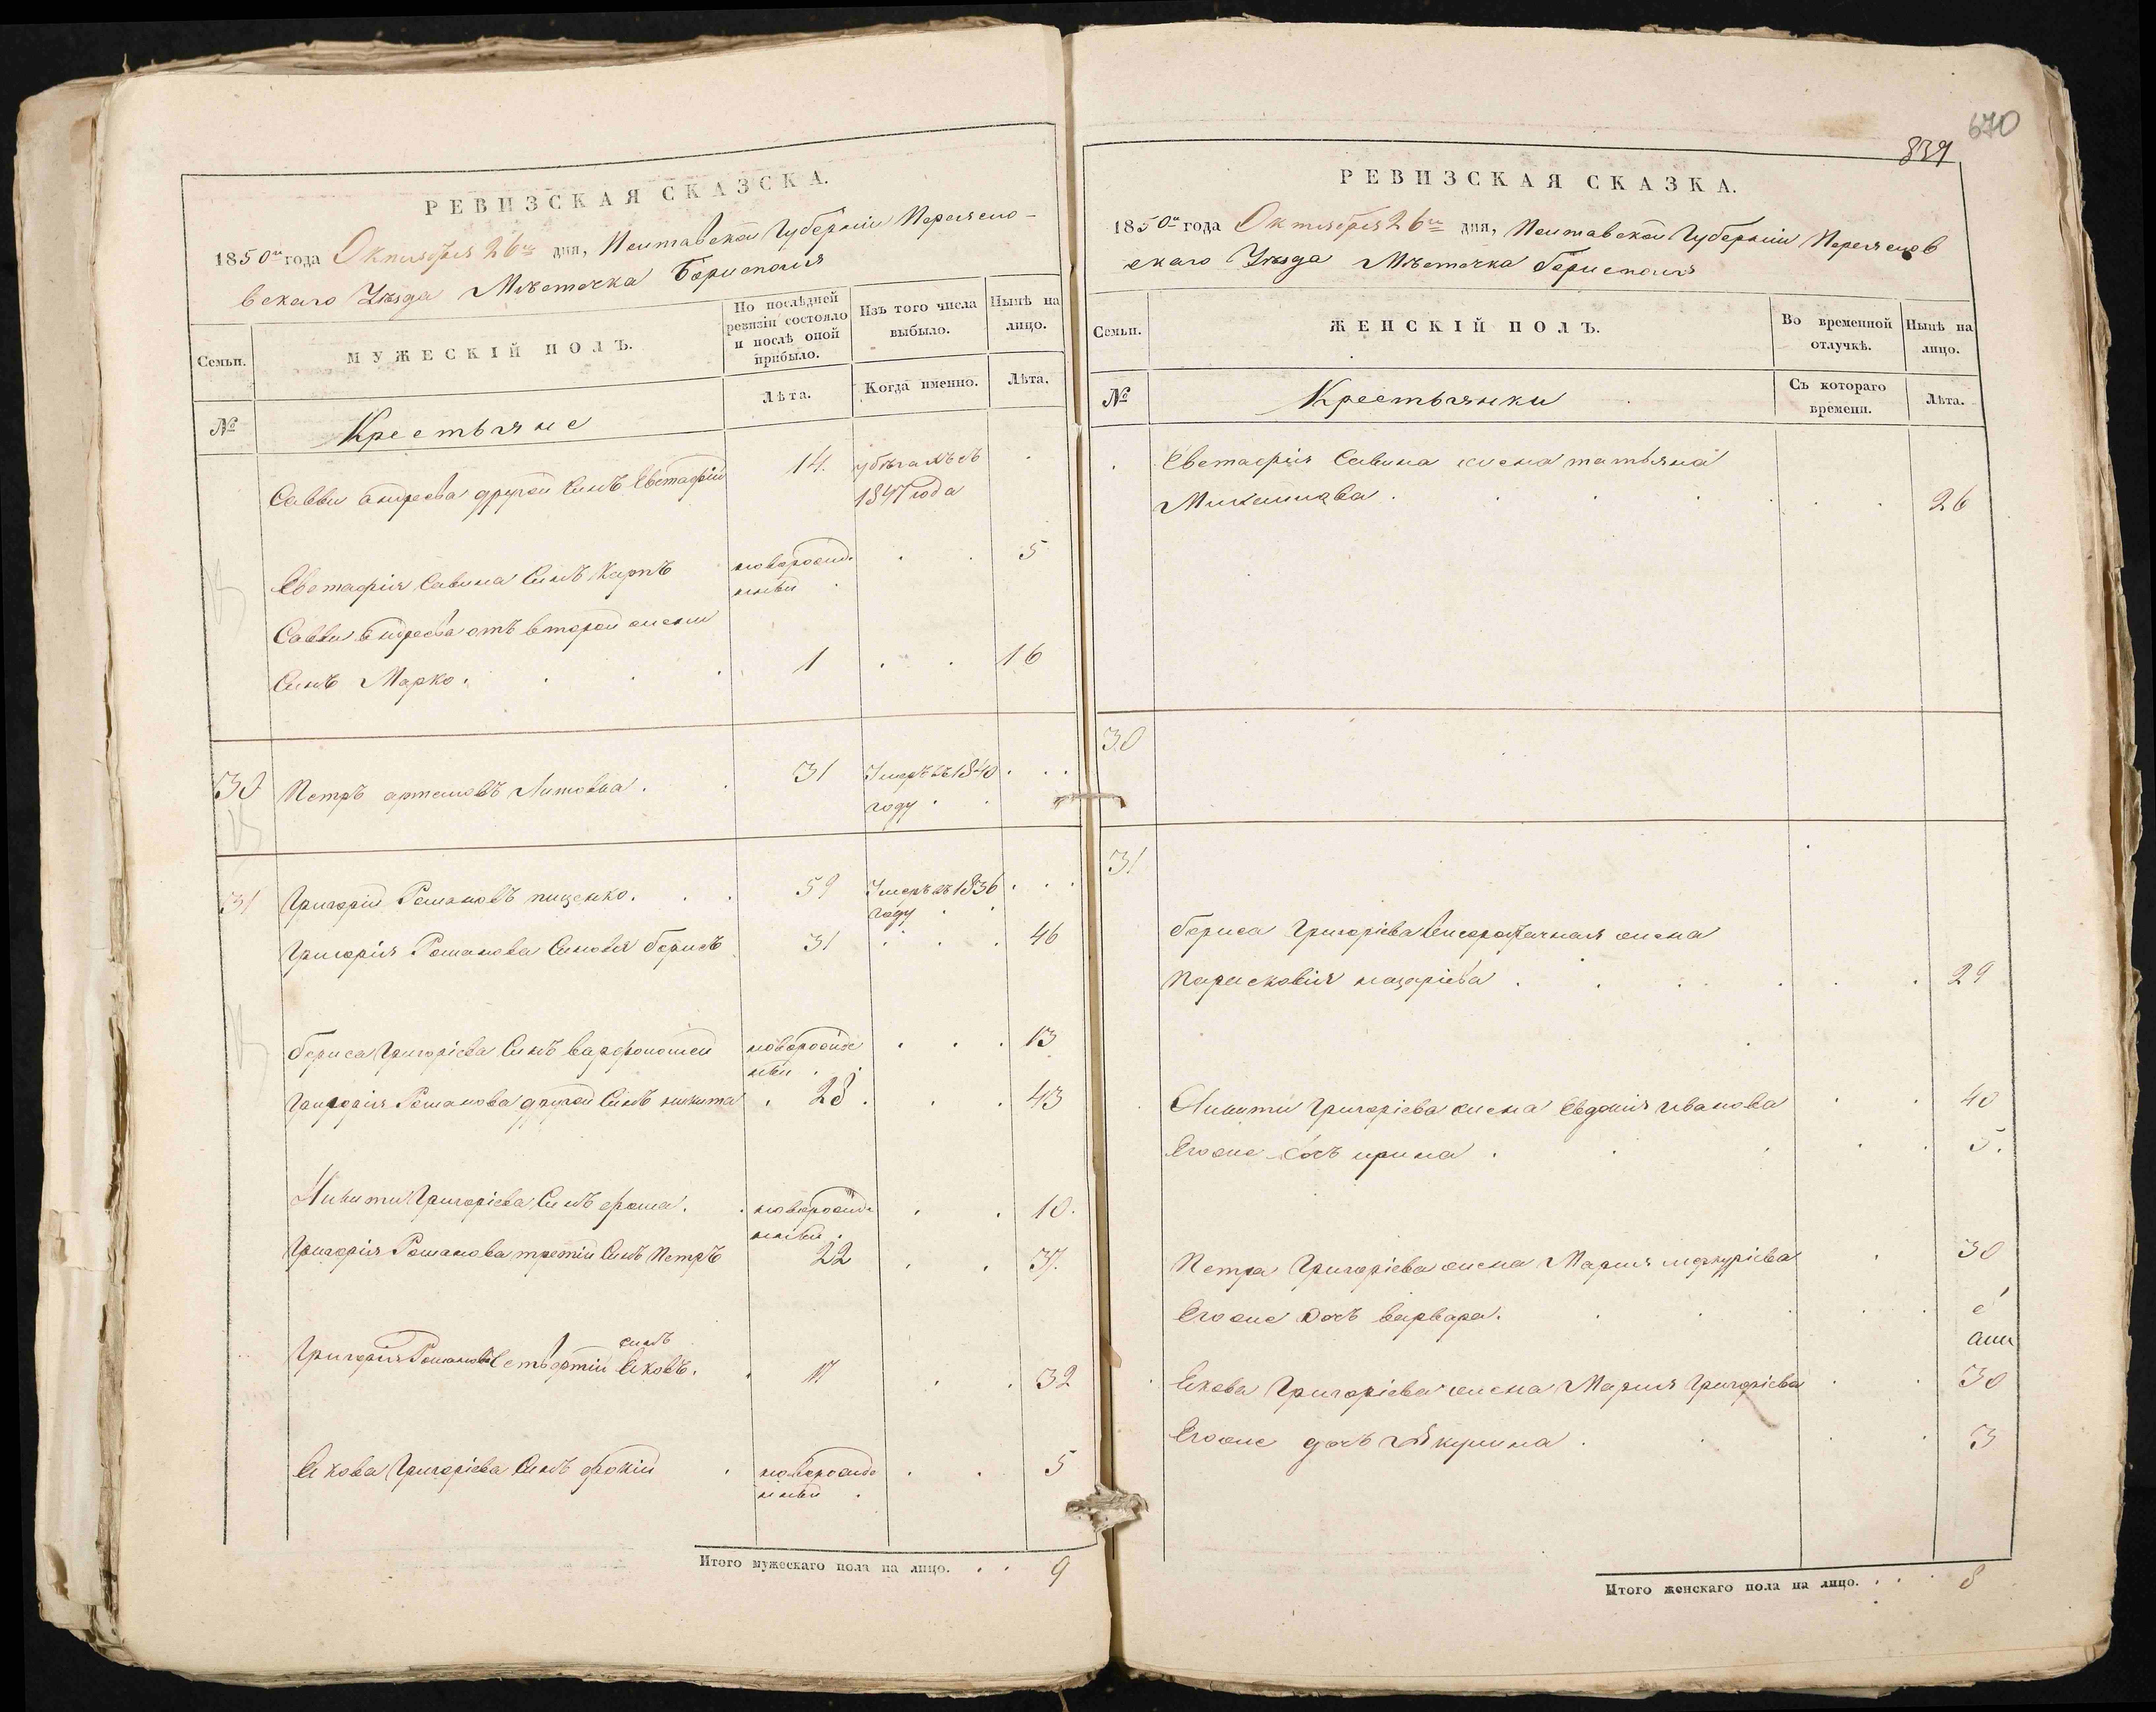 РЕВИЗСКАЯ СКАЗСКА.
1850го года Октября 26го дня, Полтавской Губерніи Переясло-
вскаго Уѣзда Мѣстечка Борисполя
Семьи.
МУЖЕСКІЙ ПОЛЪ.
По послѣдней ревизіи состояло и послѣ оной прибыло.
Изъ того числа выбыло.
Нынѣ на лицо.
№
Крестьяне
Лѣта.
Когда именно.
Лѣта.
Саввы андреева другой Сынъ Евстафій 14.
1847 года
Евстафія Савина Сынъ Карпъ новорожд 5
енный
Саввы Андреева отъ второй жены
Сынъ Марко. 1 16
30 Петръ артемовъ Литовка. 31 Умеръ въ 1840
году
31 Григорій Романовъ пиценко. 59 Умеръ въ 1836
году
Григорія Романова Сыновя борисъ 31 46
бориса Григоріева Сынъ варфоломей новорожде 13
нный
Григорія Романова другой Сынъ никита 28. 43
Никиты Григоріева Сынъ фома. новорожде 10.
нный.
Григорія Романова третій Сынъ Петръ 22 37.
сынъ
Григорія Романова Четвертій Яковъ. 17 32
Якова Григоріева Сынъ фокій новорожде 5
нный
Итого мужескаго пола на лицо. 9
670
839
РЕВИЗСКАЯ СКАЗКА.
1850го года Октября 26го дня, Полтавской Губерніи Переяслов
скаго Уѣзда Мѣстечка борисполя
Семьи.
ЖЕНСКІЙ ПОЛЪ.
Во временной отлучкѣ.
Нынѣ на лицо.
№
Крестьянки
Съ котораго времени.
Лѣта.
Евстафія Савина жена татьяна
26
30
31
бориса Григоріева жена
Парасковія назаріева 29
Никиты Григоріева жена Евдокія иванова 40
Его же дочъ ирина. 5.
Петра Григоріева жена Марія меркуріева 30
Его же дочъ варвара.
Якова Григоріева жена Марія Григоріева 30
Его же дочъ Акулина. 3
Итого женскаго пола на лицо. 8